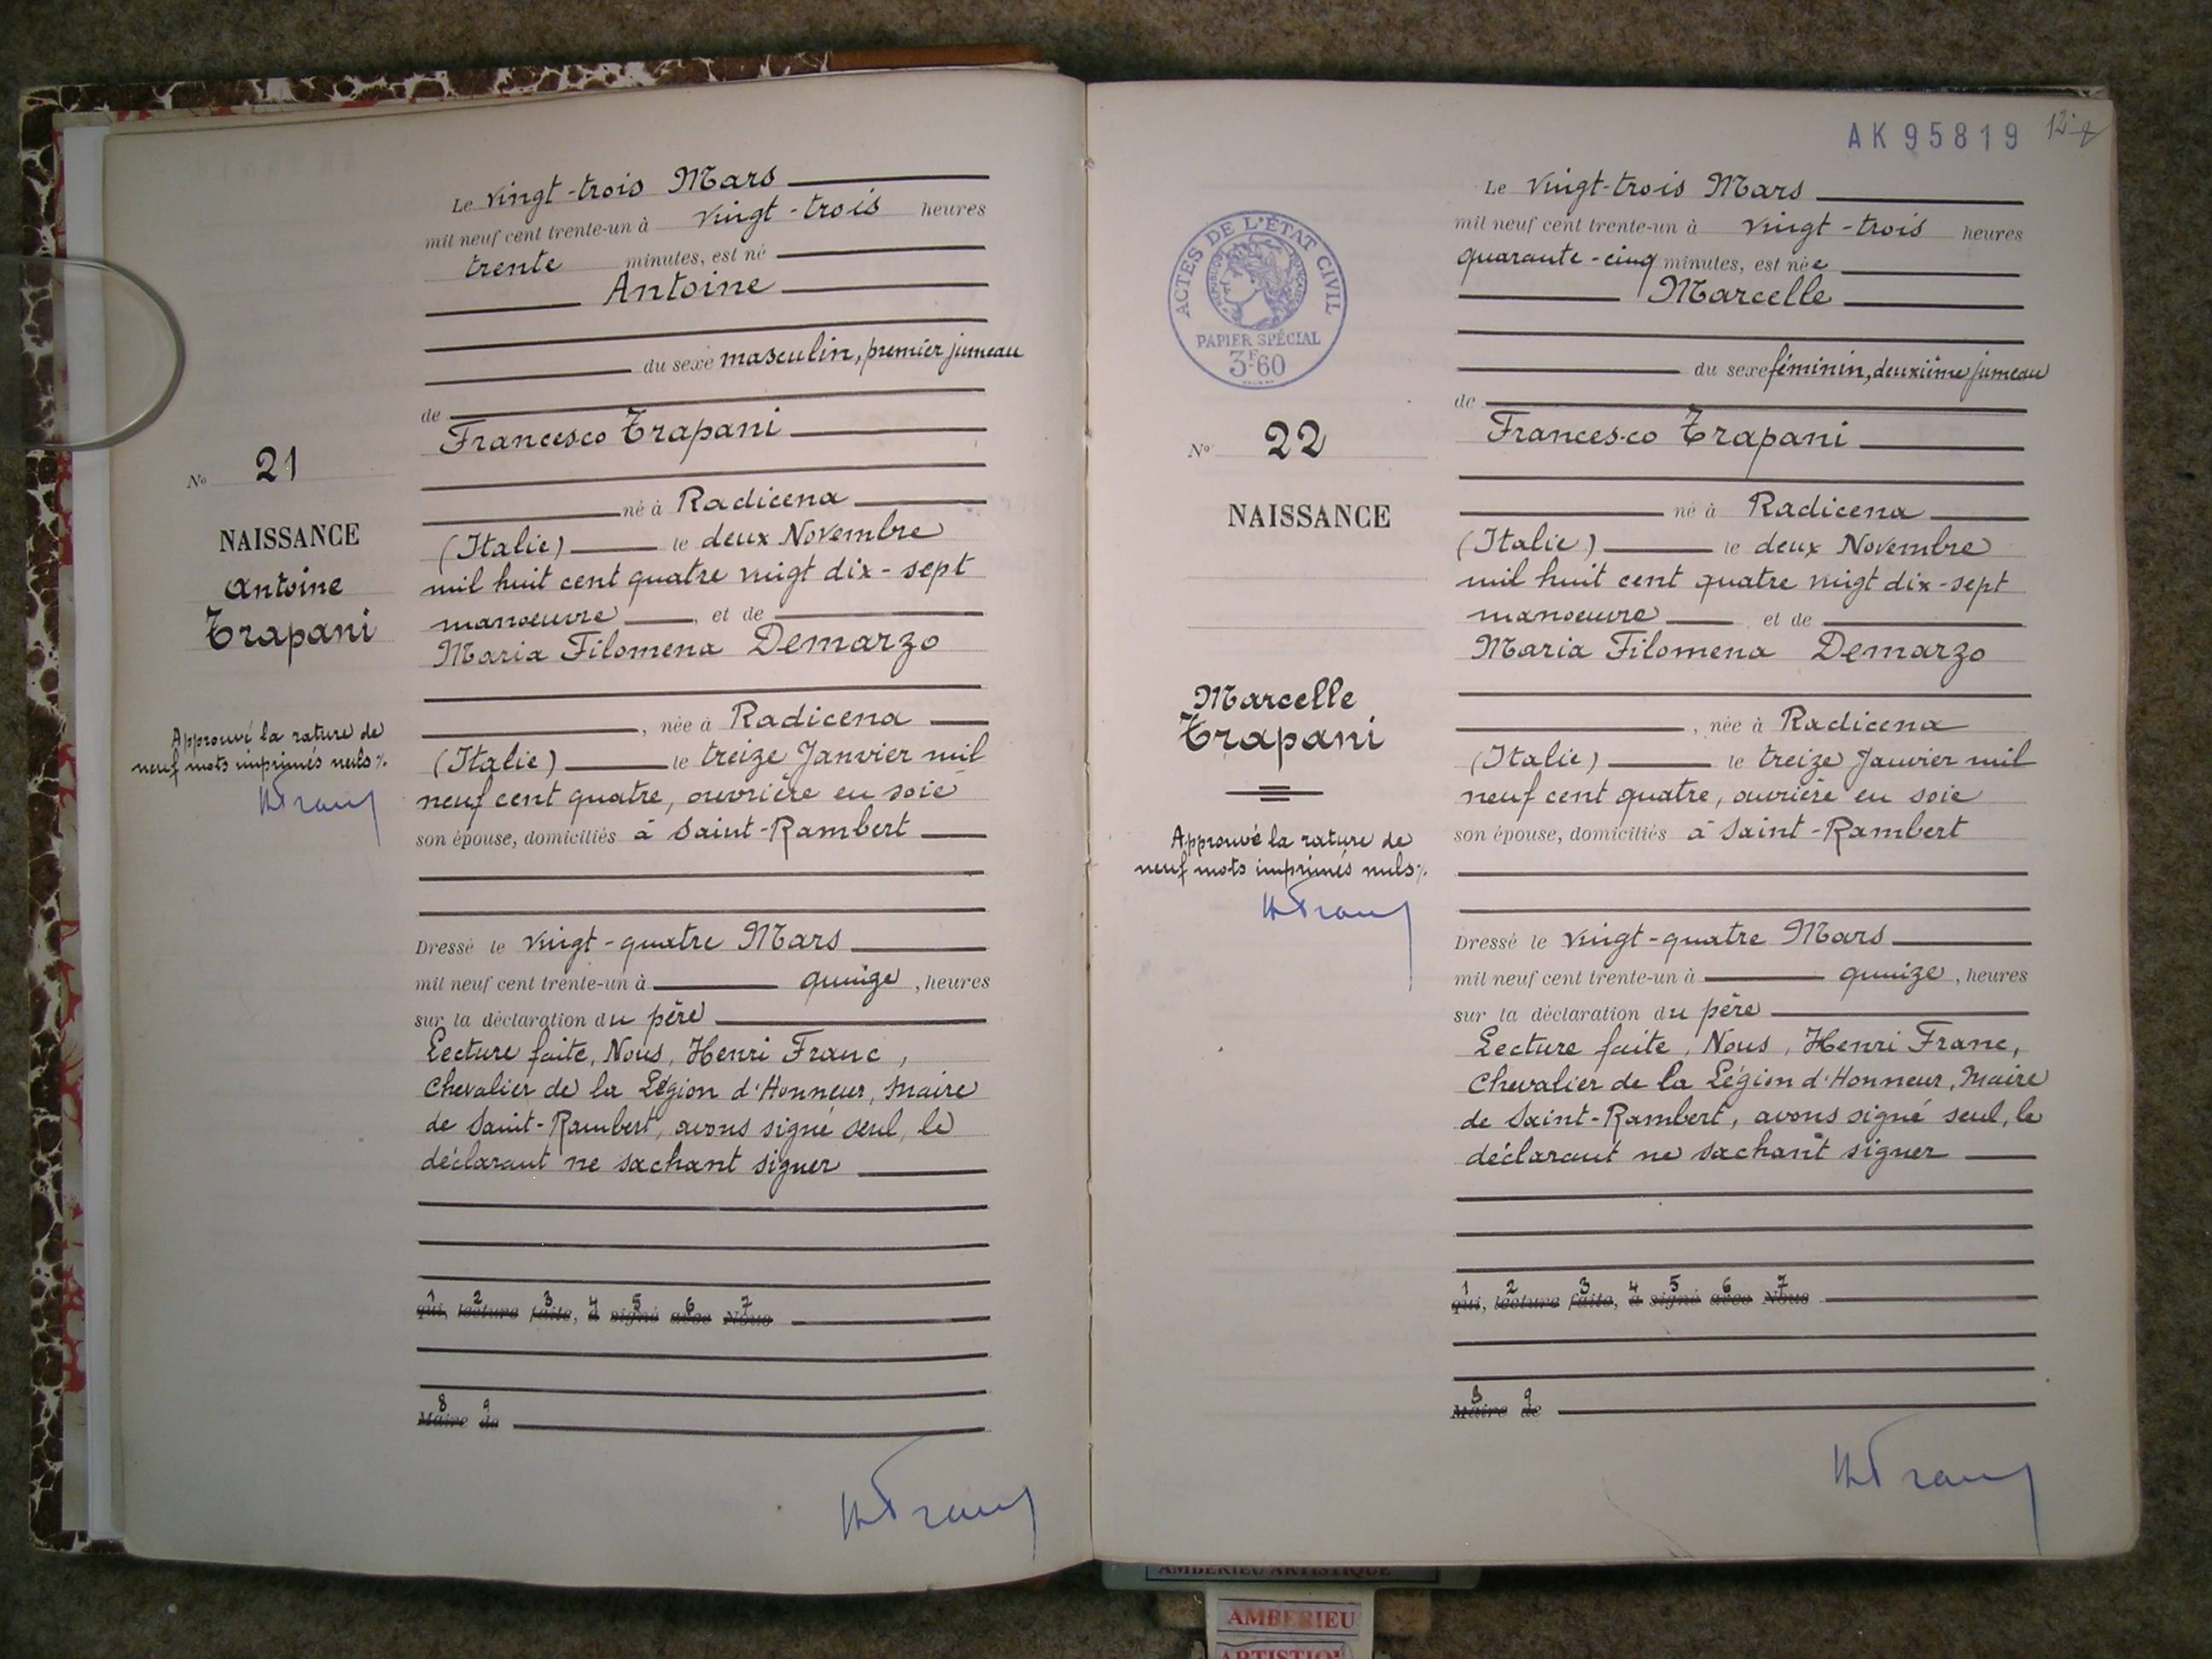 Le vingt-trois Mars
mil neuf cent trente-un à vingt-trois heures
trente minutes, est né
Antoine
du sexe masculin, premier jumeau
de
Francesco Trapani
né à Radicena
(Italie) le deux Novembre
mil huit cent quatre vingt dix-sept
manoeuvre, et de
Maria Filomena Demarzo
, née à Radicena
(Italie) le treize Janvier mil
neuf cent quatre, ouvrière en soie
son épouse, domiciliés à Saint-Rambert
Dressé le vingt-quatre Mars
mil neuf cent trente-un à quinze, heures
sur la déclaration du père
Lecture faite, Nous, Henri Franc,
Chevalier de la Légion d'Honneur, Maire
de Saint-Rambert, avons signé seul, le
déclarant ne sachant signer
1 2 3 4 5 6 7
qui, lecture faite, a signé avec Nous
8 9
Maire de
HFranc
No 21
NAISSANCE
Antoine
Trapani
Approuvé la rature de
neuf mots imprimés nuls %.
HFranc
AK 95819
ACTES DE L'ÉTAT CIVIL
RÉPUBLIQUE FRANÇAISE
PAPIER SPÉCIAL
3F60
No 22
NAISSANCE
Marcelle
Trapani
Approuvé la rature de
neuf mots imprimés nuls %.
HFranc
Le vingt-trois Mars
mil neuf cent trente-un à vingt-trois heures
quarante-cinq minutes, est née
Marcelle
du sexe féminin, deuxième jumeau
de
Francesco Trapani
né à Radicena
(Italie) le deux Novembre
mil huit cent quatre vingt dix-sept
manoeuvre, et de
Maria Filomena Demarzo
, née à Radicena
(Italie) le treize Janvier mil
neuf cent quatre, ouvrière en soie
son épouse, domiciliés à Saint-Rambert
Dressé le vingt-quatre Mars
mil neuf cent trente-un à quinze, heures
sur la déclaration du père
Lecture faite, Nous, Henri Franc,
Chevalier de la Légion d'Honneur, Maire
de Saint-Rambert, avons signé seul, le
déclarant ne sachant signer
1 2 3 4 5 6 7
qui, lecture faite, a signé avec Nous
8 9
Maire de
HFranc
AMBERIEU ARTISTIQUE
AMBERIEU
ARTISTIQU